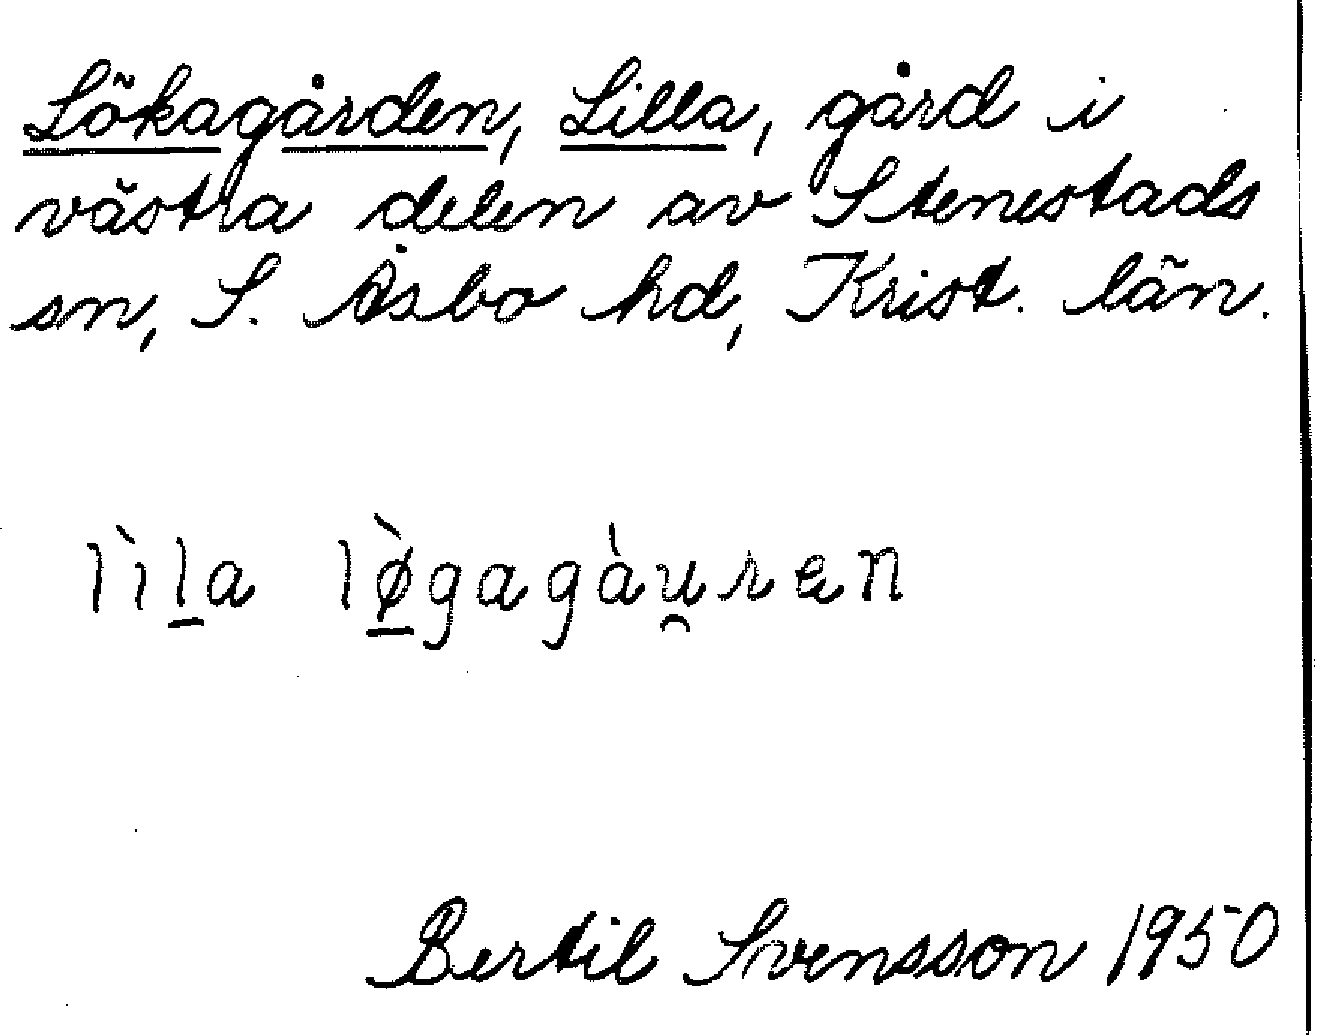 Lökagården, Lilla, gård i
västra delen av Stenestads
sn, S. Åsbo hd, Krist. län.
lìl̲a lø̲̀gagàu̯ren
Bertil Svensson 1950